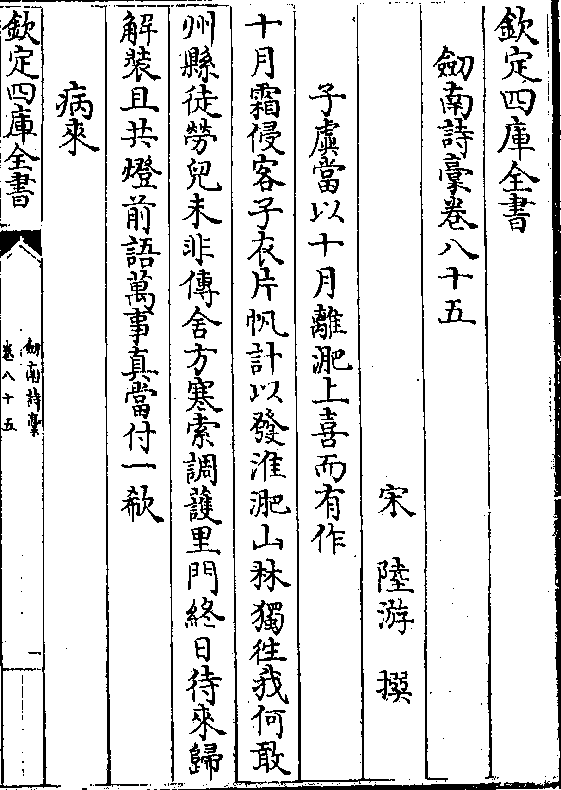 欽定四庫全書
劒南詩稾卷八十五
宋 陸游 撰
子虡當以十月離淝上喜而有作
十月霜侵客子衣片帆計以發淮淝山林獨往我何敢
州縣徒勞兒未非傳舍方寒索調護里門終日待來歸
解裝且共燈前語萬事真當付一欷
病來
欽定四庫全書
劒南詩稾
卷八十五
一